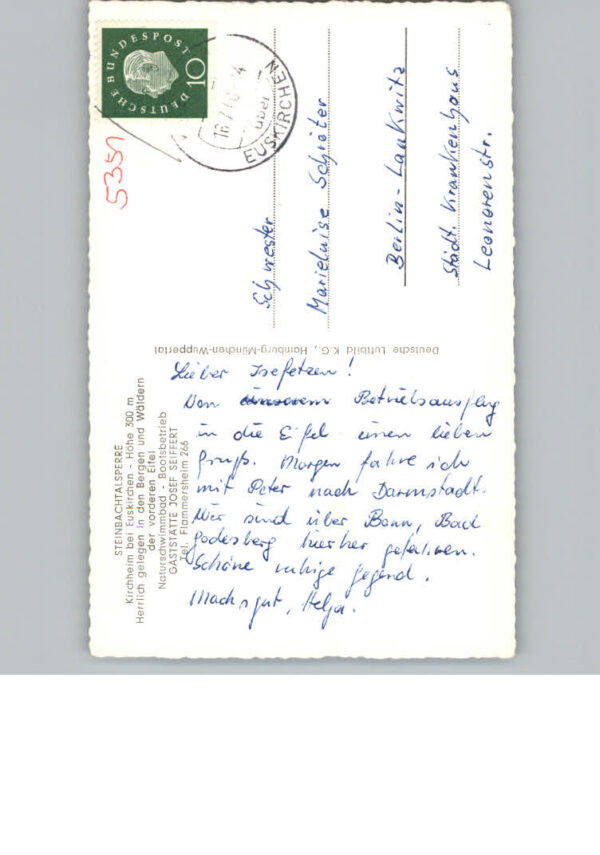 STEINBACHTALSPERRE
Kirchheim bei Euskirchen - Höhe 300 m
Herrlich gelegen in den Bergen und Wäldern
der vorderen Eifel
Naturschwimmbad - Bootsbetrieb
GASTSTÄTTE JOSEF SEIFFERT
Tel. Flammersheim 266
Lieber
Von unserem Betriebsausflug
in die Eifel einen lieben
Gruß. Morgen fahre ich
mit Peter nach Darmstadt.
Wir sind über Bonn, Bad
Godesberg hierher gefahren.
Schöne ruhige Gegend.
Machs gut, Helga.
Deutsche Luftbild K.G., Hamburg-München-Wuppertal
Schwester
Marieluise Schröter
Berlin-Lankwitz
Städt. Krankenhaus
Leonorenstr.
DEUTSCHE BUNDESPOST
10
über
EUSKIRCHEN
5351